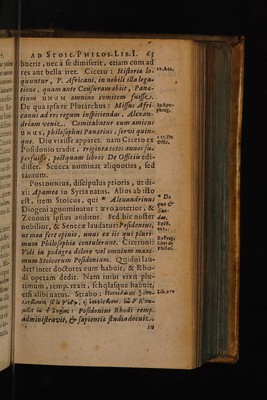 AD STOIC. PHILOS. LIB. I. 63
buerit, nec à se dimiserit, etiam cum ad
res aut bella iret. Cicero: Historiæ lo-
quuntur, P. Africani, in nobili illa lega-
tione, quam ante Censuram obiit, Panæ-
tium UNUM omnino comitem fuisse.
De qua ipsa re Plutarchus: Missus Afri-
canus ad res regum inspiciendas, Alexan-
driam venit. Comitabatur eum amicus
UNUS, philosophus Panætius, servi quin-
que. Diu vixisse apparet. nam Cicero ex
Posidonio tradit, triginta totos annos su-
pervixisse, postquam libros De Officiis edi-
disset. Seneca nominat aliquoties, sed
tantum.
POSIDONIUS, discipulus prioris, ut di-
xi: Apameæ in Syria natus. Alius ab isto
est, item Stoicus, qui * Alexandrinus
Diogeni agnominatur: ævo anterior, &
Zenonis ipsius auditor. Sed hic noster
nobilior, & Senecæ laudatur: Posidonius,
ut mea fert opinio, unus ex iis qui pluri-
mum Philosophiæ contulerunt. Ciceroni:
Vidi in podagræ dolore vel omnium maxi-
mum Stoicorum Posidonium. Quidni lau-
det? inter doctores eum habuit, & Rho-
di operam dedit. Nam inibi vixit pluri-
mum, remp. rexit, scholasque habuit,
etsi alibi natus. Strabo:
Posidonius Rhodi remp.
administravit, & sapientiæ studia docuit.
IV. Acc.
In Apo-
phteg.
III. De
Offic.
* De
quo &
Sui-
das.
Epist.
II. Tusc.
Lib. XIV